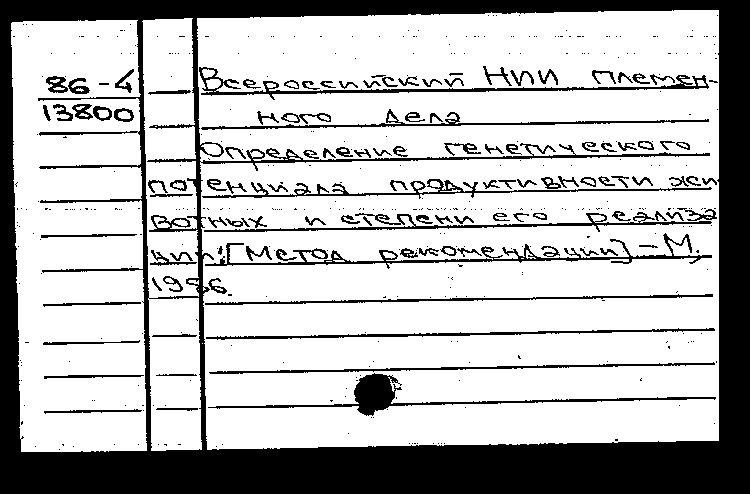 86-4 Всероссийский НИИ племен-
13800 ного дела
Определение генетического
потенциала продуктивности жи
вотных и степени его реализа
ции: [Метод рекомендации] - М.,
1986.